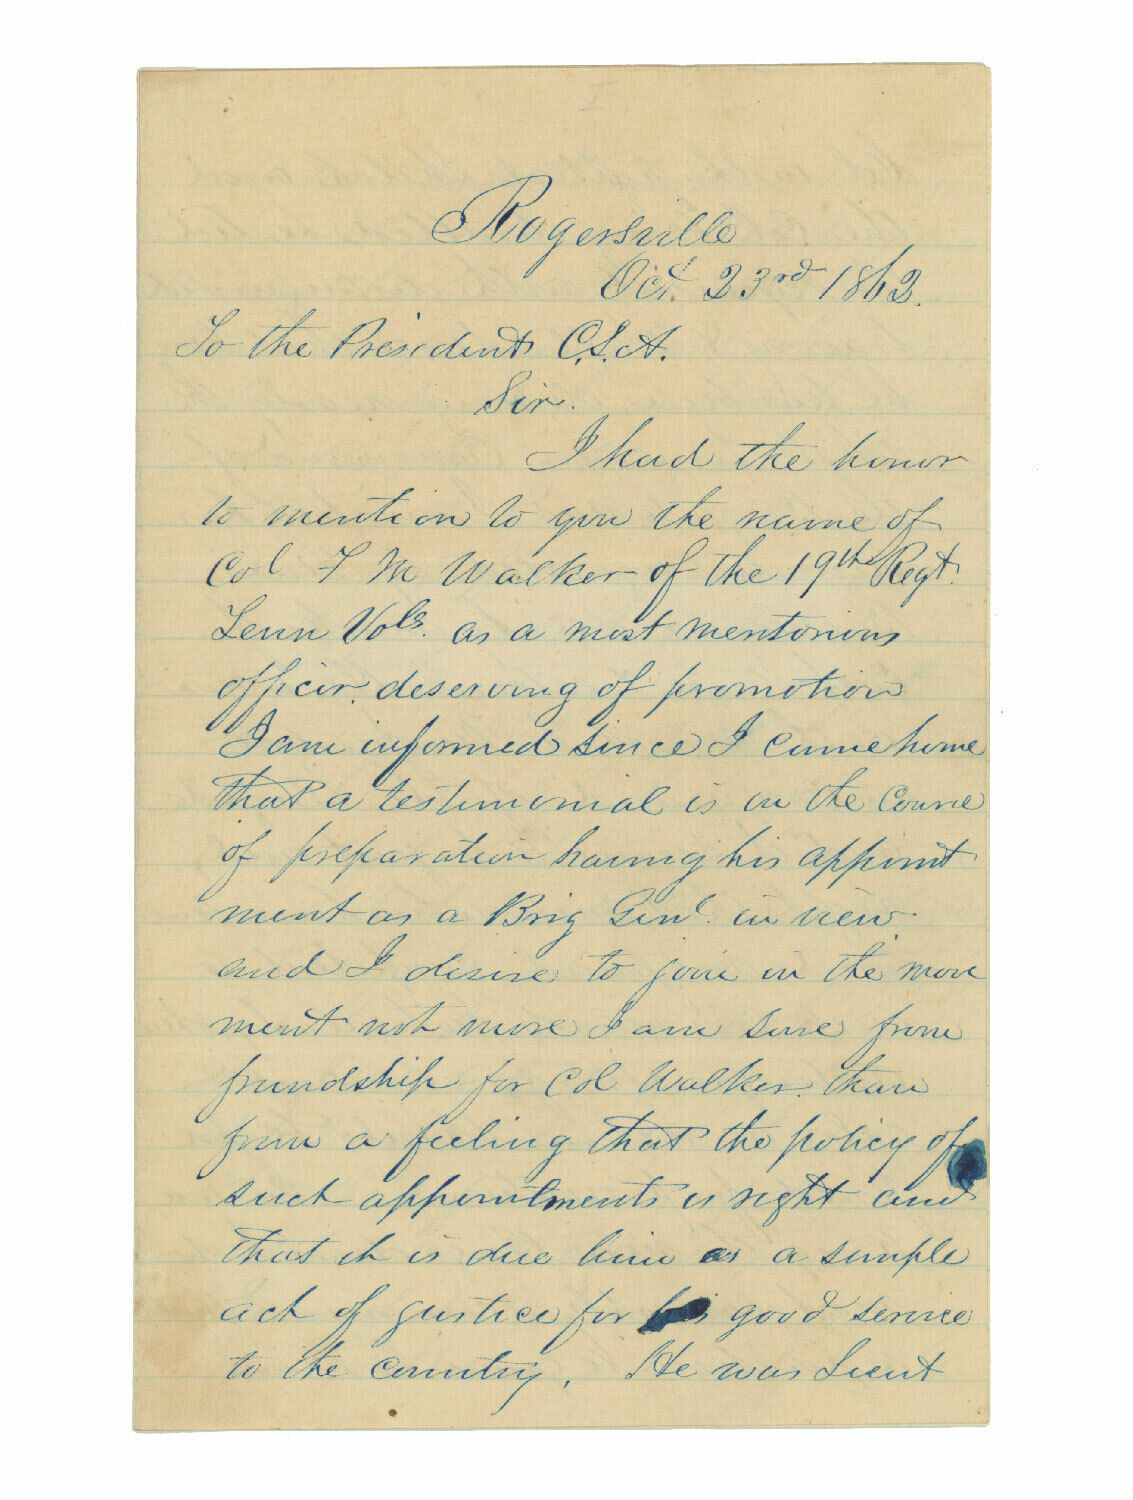 Rogersville
Oct. 23rd 1862.
To the President C.S.A.
Sir.
I had the honor
to mention to you the name of
Col F M Walker of the 19th Regt.
Tenn Vols. as a most meritorious
officer deserving of promotion
I am informed since I came home
that a testimonial is in the course
of preparation having his appoint
ment as a Brig Genl. in view
and I desire to join in the move
ment not more I am sure from
friendship for Col Walker than
from a feeling that the policy of
such appointments is right and
that it is due him as a simple
act of justice for his good service
to the country. He was Lieut